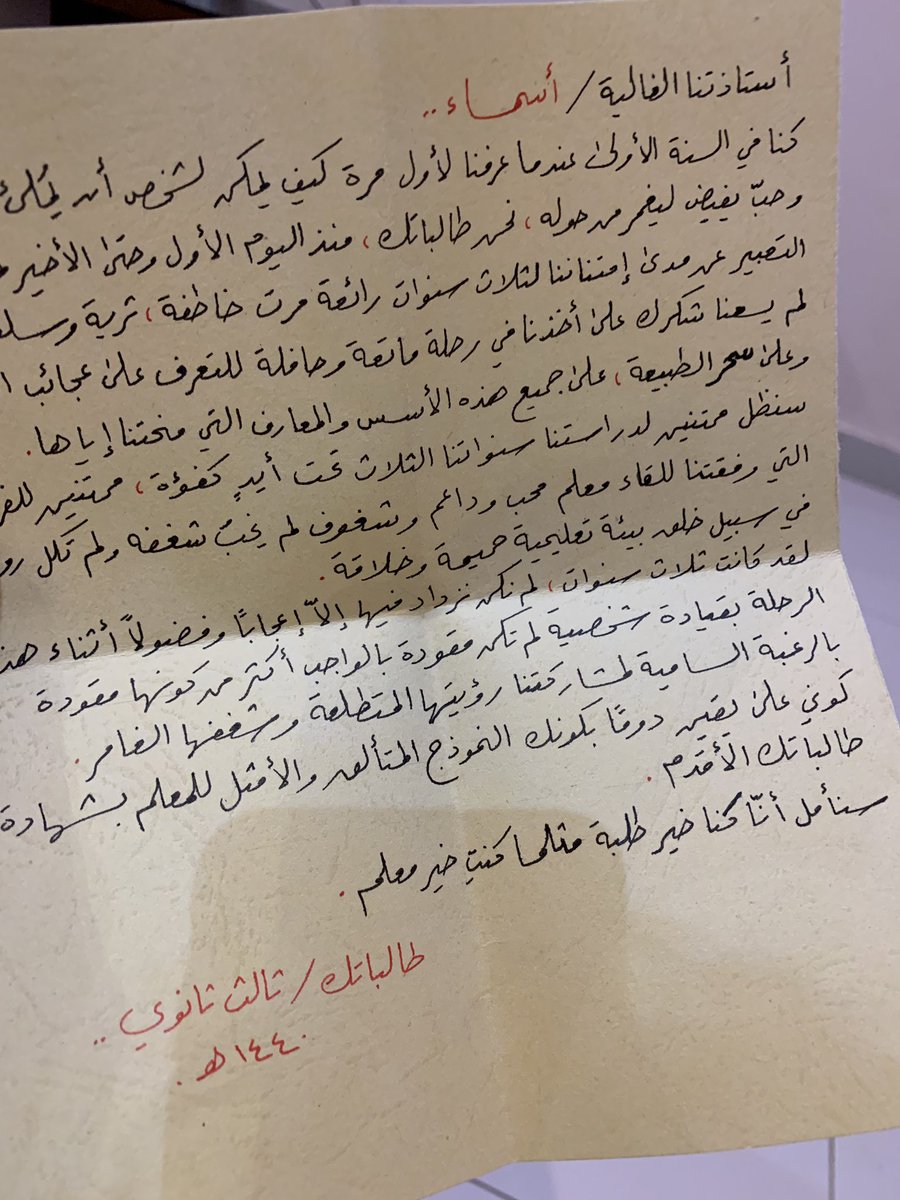 أستاذتنا الغالية / أسماء ..
كنا في السنة الأولى عندما عرفنا لأول مرة كيف يمكن لشخص أن يُملئ
وحبّ يفيض ليغمر من حوله، نحن طالباتك، منذ اليوم الأول وحتى الأخير
التعبير عن مدى إمتناننا لثلاث سنوات رائعة مرت خاطفة، ثرية و
لم يسعنا شكرك على أخذنا في رحلة ماتعة وحافلة للتعرف على عجائب
وعلى سحر الطبيعة، على جميع هذه الأسس والمعارف التي منحتنا إياها.
سنظل ممتنين لدراستنا سنواتنا الثلاث تحت أيدٍ كفؤة، ممتنين
التي وفقتنا للقاء معلم محب وداعم وشغوف لم يخبُ شغفه ولم تكلل
في سبيل خلق بيئة تعليمية حميمة وخلاقة.
لقد كانت ثلاث سنوات، لم نكن نزداد فيها إلاّ إعجابًا وفضولاً أثناء
الرحلة بقيادة شخصية لم تكن مقودة بالواجب أكثر من كونها مقودة
بالرغبة السامية لمشاركتنا رؤيتها المتطلعة وشغفها الغامر.
كوني على يقين دومًا بكونك النموذج المتألق والأمثل للمعلم بشهادة
طالباتك الأقدم.
سنأمل أنّا كنا خير طلبة مثلما كنتِ خير معلم.
طالباتك / ثالث ثانوي ..
١٤٤٠ هـ.